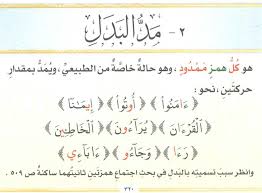 ٢ - مَدُّ البَدَلِ
هو كُلُّ همزٍ مَمْدُودٍ، وهو حالةٌ خاصَّةٌ من الطبيعيِّ، ويُمَدُّ بمقدارِ
حركتَينِ، نحو:
﴿ءَامَنُواْ﴾ ﴿أُوتُواْ﴾ ﴿إِيمَـٰنًا﴾
﴿الْقُرْءَانَ﴾ ﴿يُرَآءُونَ﴾ ﴿الْخَاطِـِٔينَ﴾
﴿رَءَا﴾ ﴿وَجَآءُو﴾ ﴿ءَابَآءِي﴾
وانظر سببَ تسميتِه بالبَدَلِ في بحثِ اجتماعِ همزتَينِ ثانيتُهما ساكنةٌ ص ٥٠٩.
٢٢٠